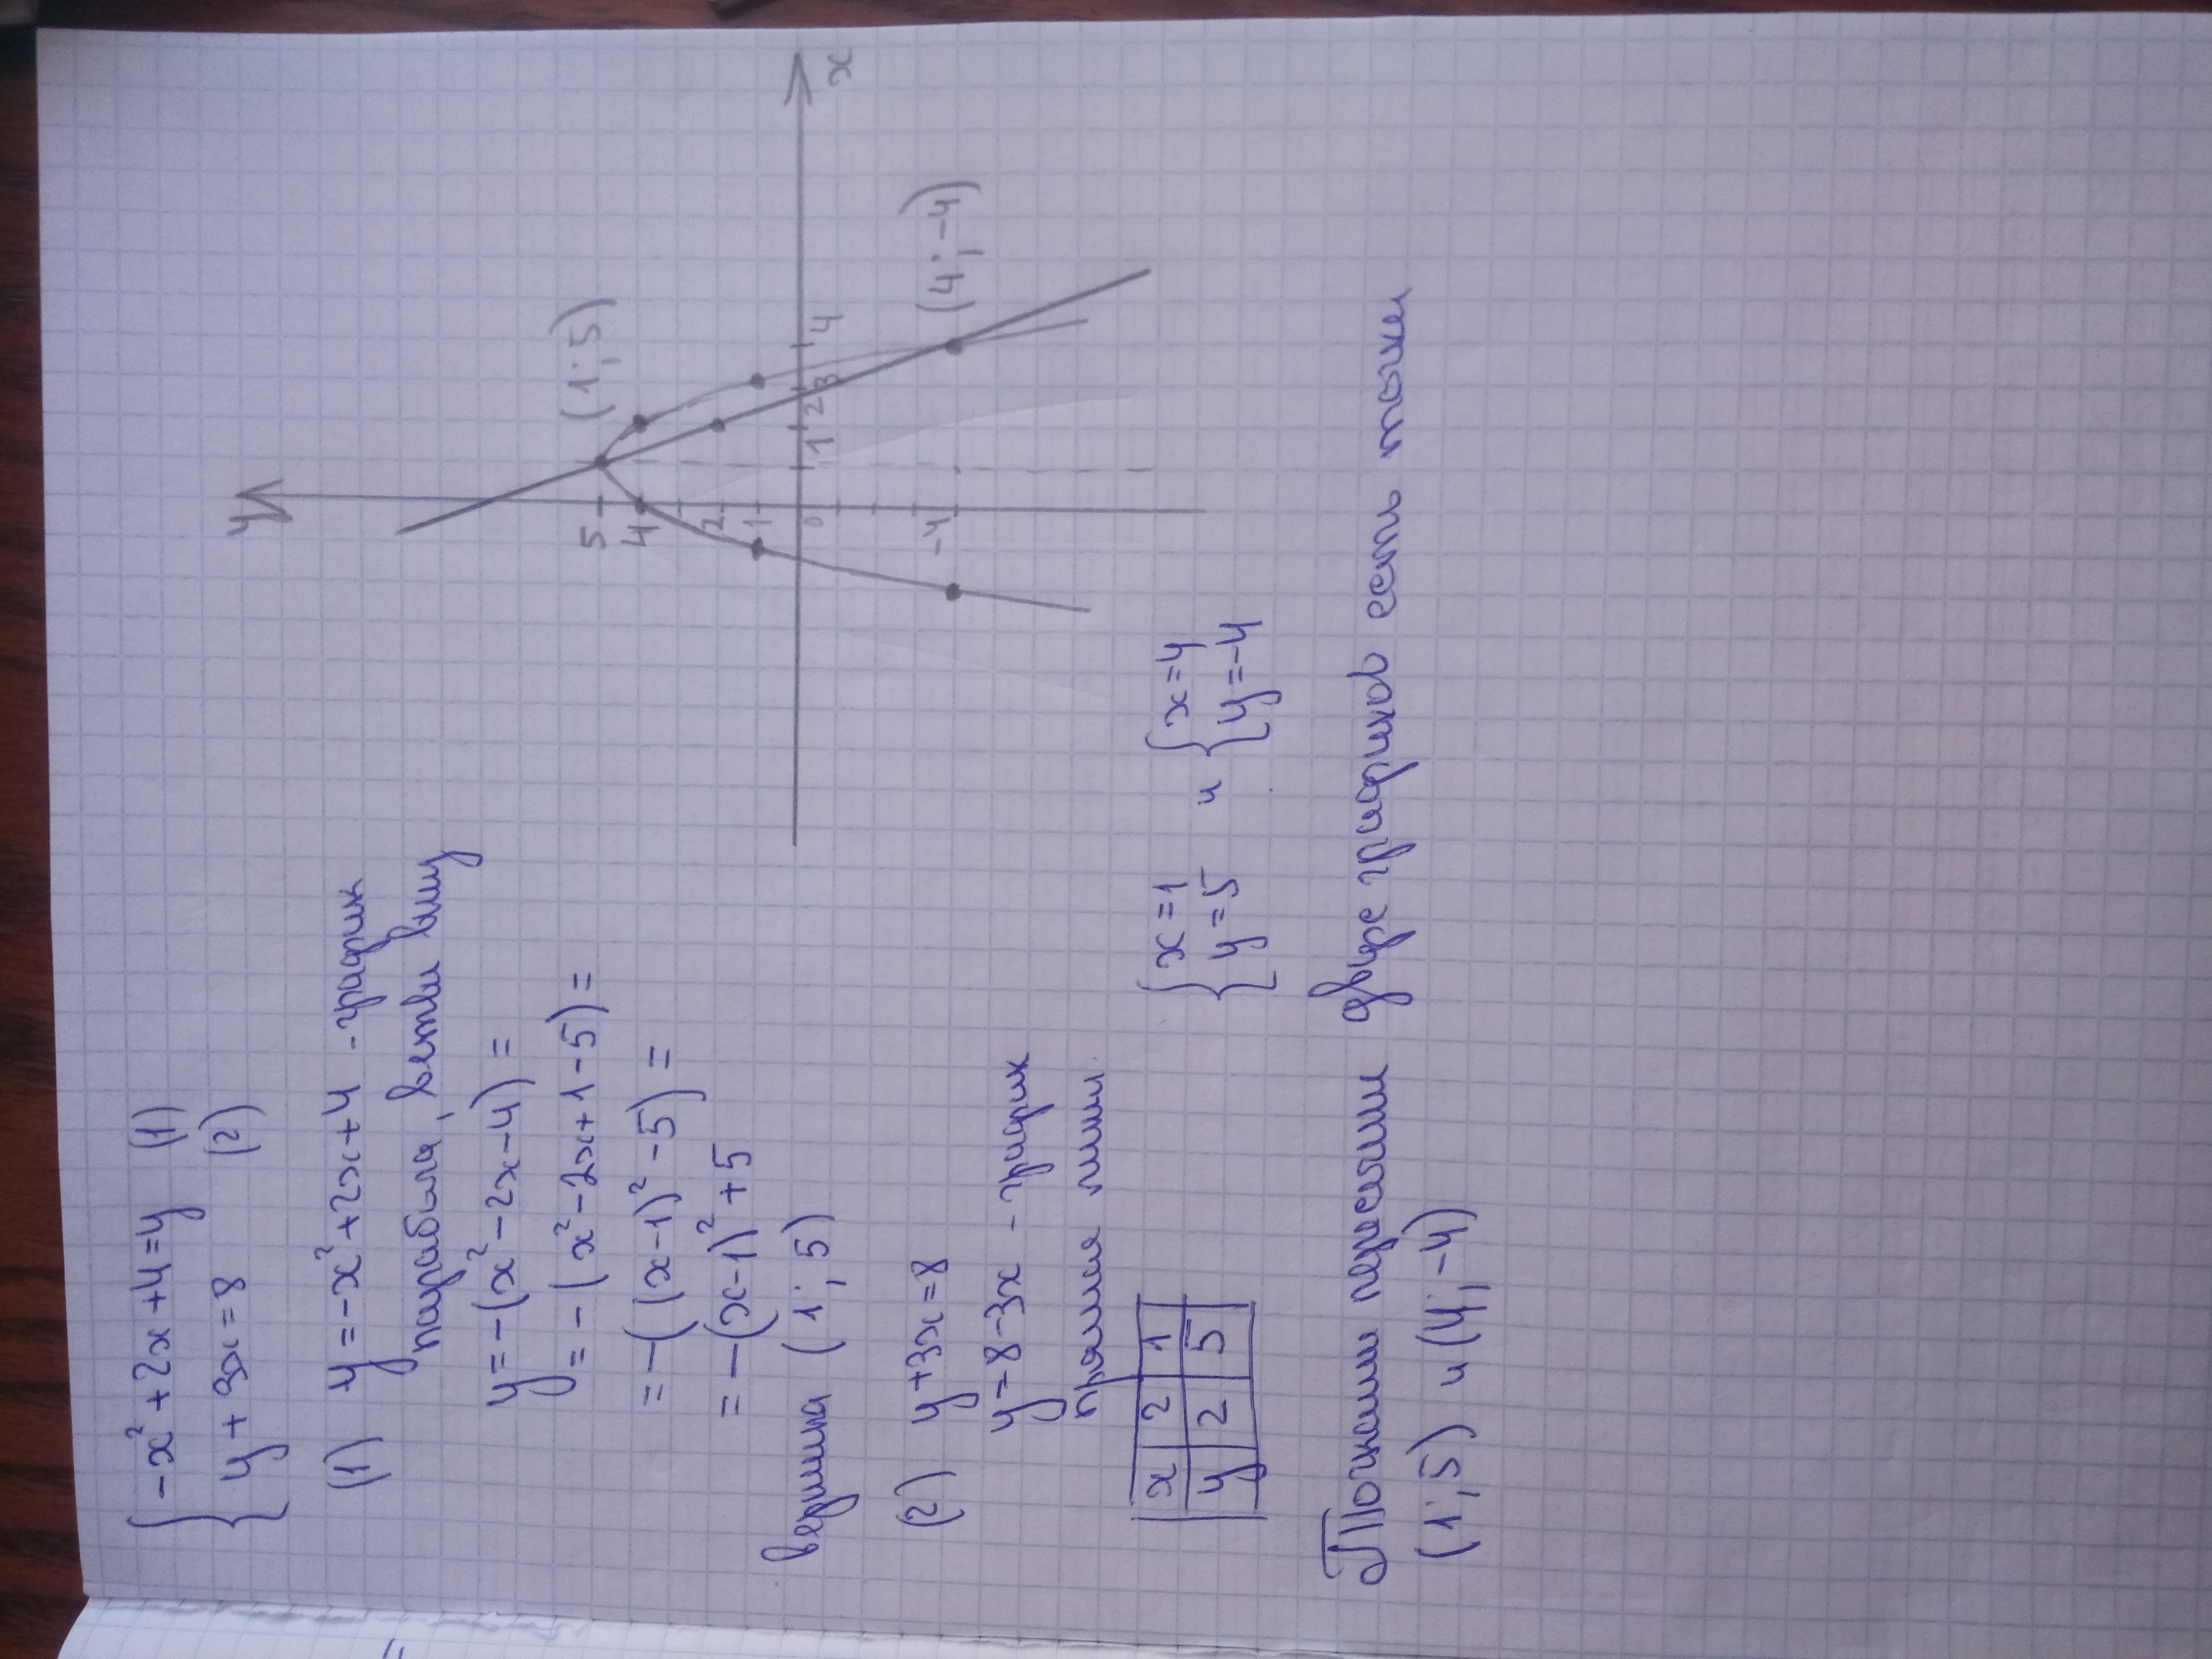 { -x² + 2x + 4 = y (1)
{ y + 3x = 8 (2)
(1) y = -x² + 2x + 4 - график
парабола, ветви вниз
y = -(x² - 2x - 4) =
y = -(x² - 2x + 1 - 5) =
= -((x-1)² - 5) =
= -(x-1)² + 5
вершина (1; 5)
(2) y + 3x = 8
y = 8 - 3x - график
прямая линия.
x 2 1
y 2 5
y
x
5
4
2
1
0
-4
1 2 3 4
(1; 5)
(4; -4)
{ x = 1 и { x = 4
{ y = 5 { y = -4
пересечения двух графиков есть точки
(1; 5) и (4; -4)